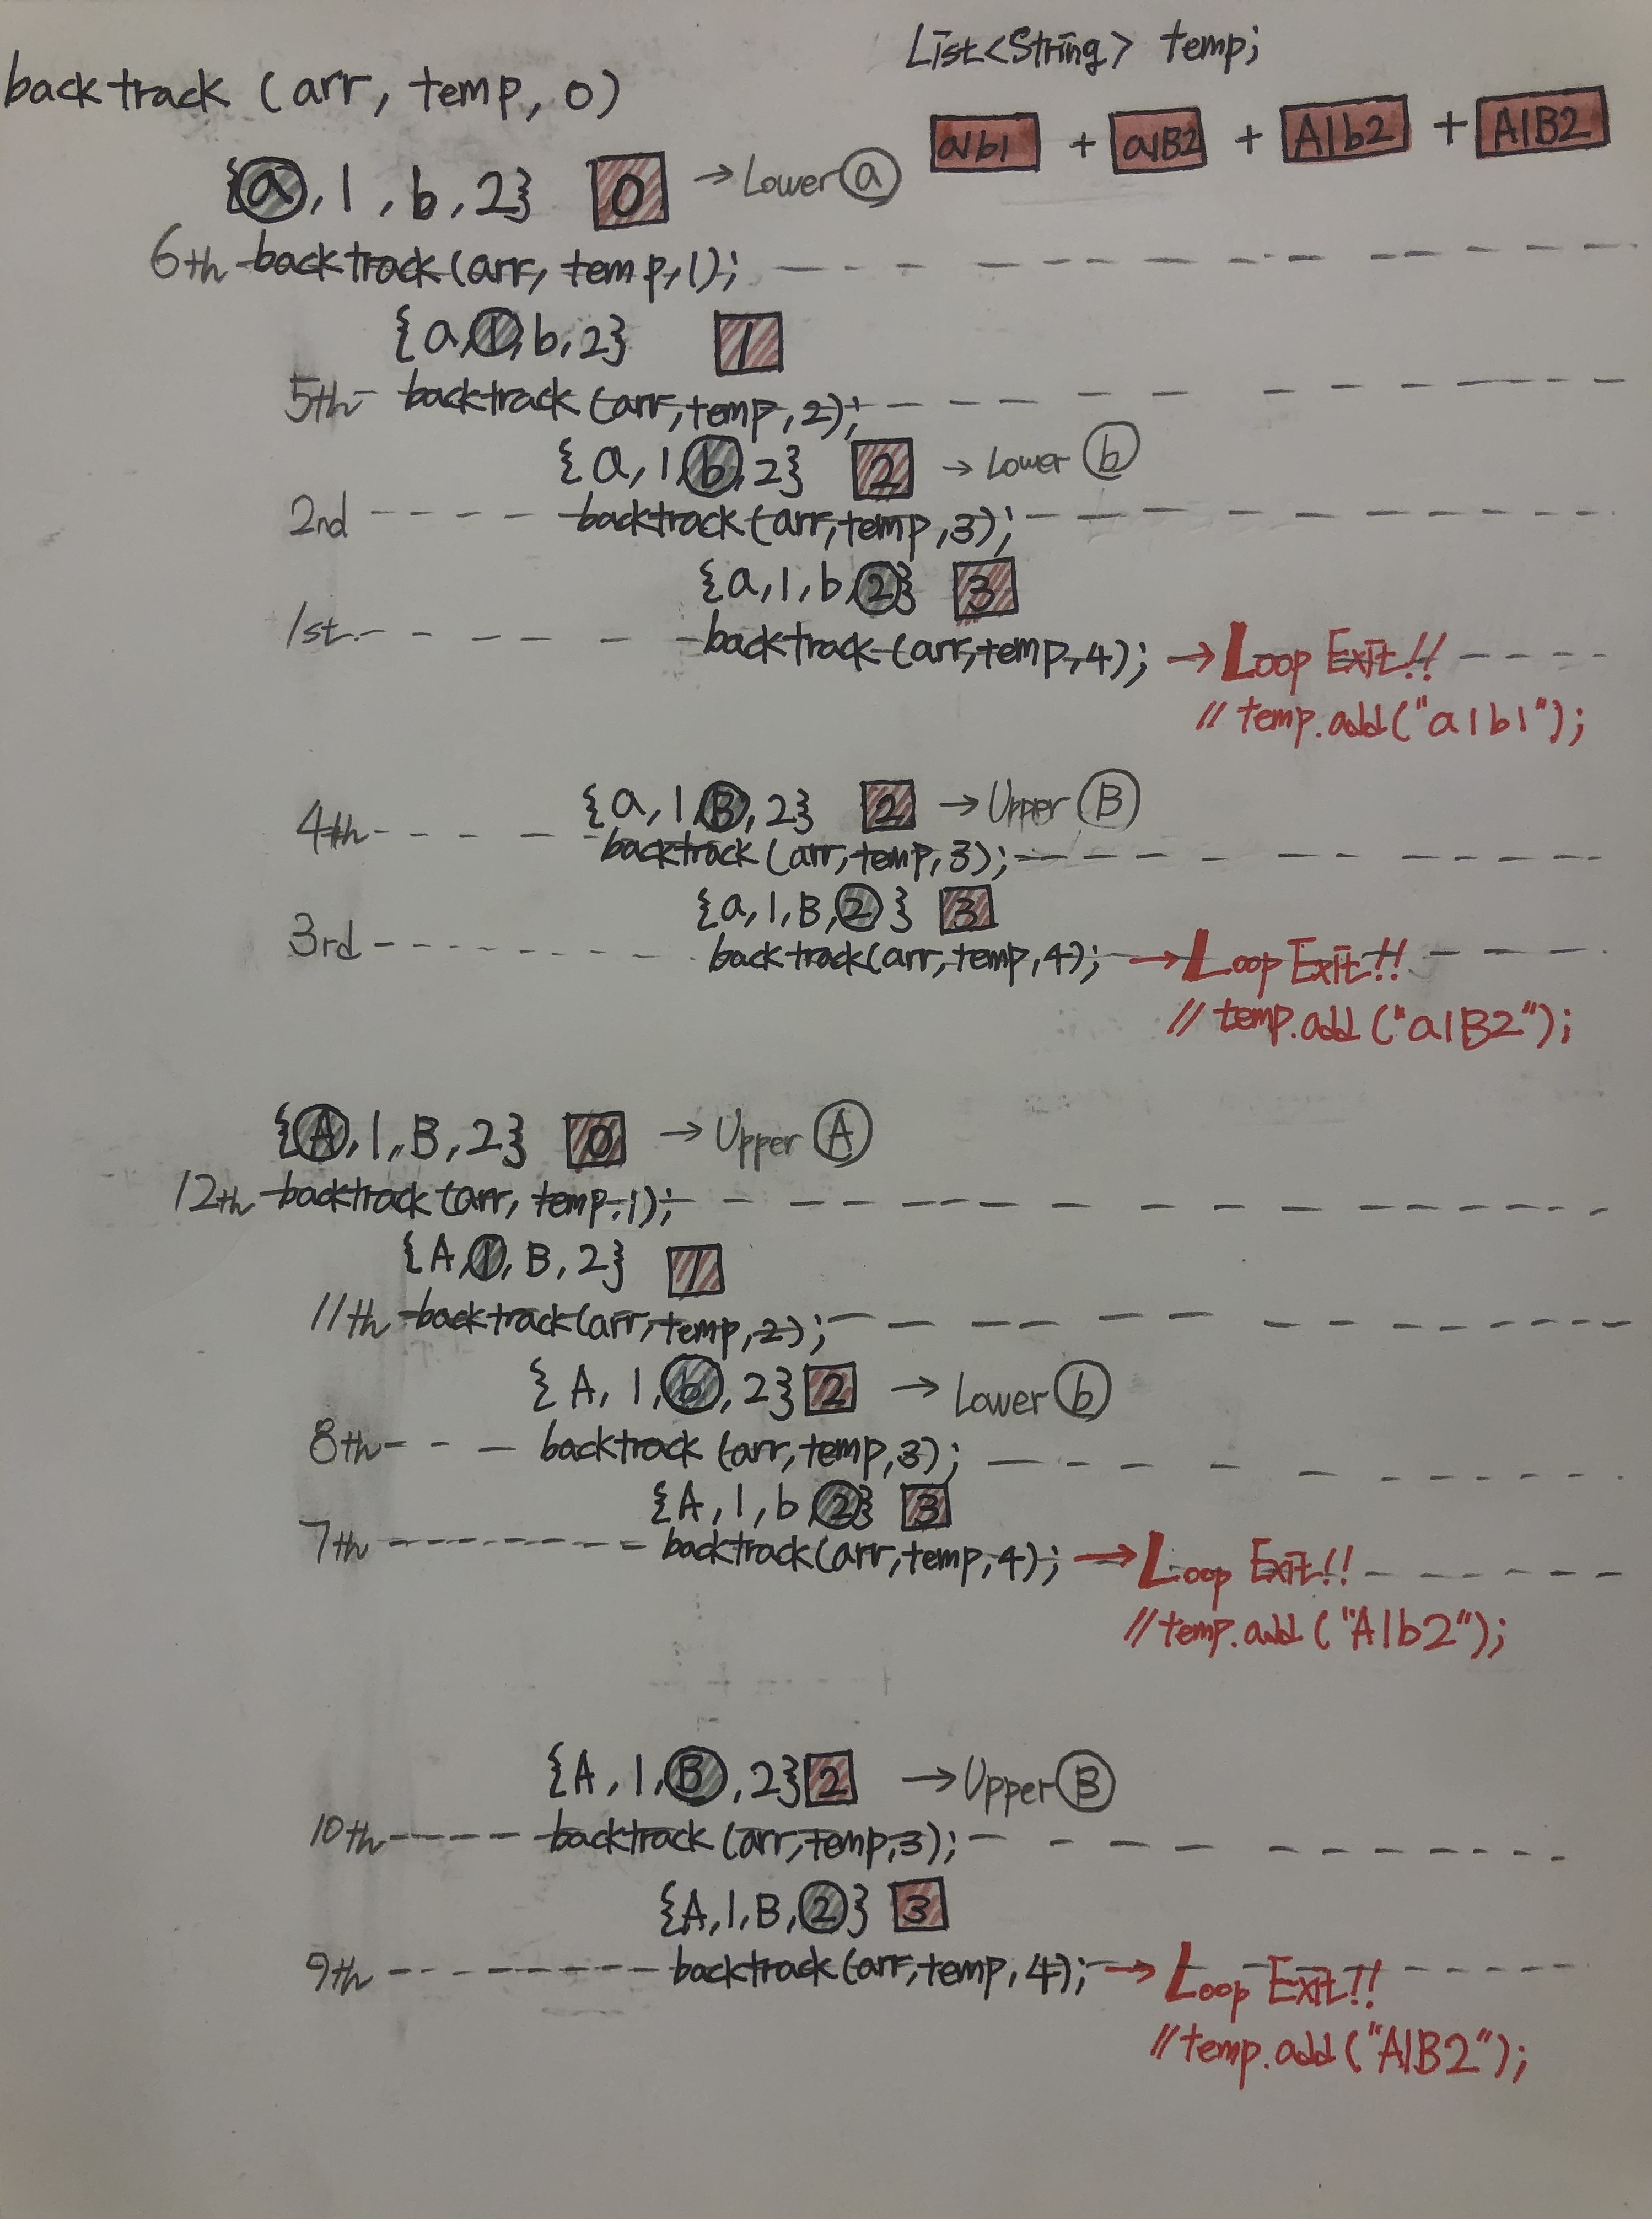 List<String> temp;
backtrack (arr, temp, 0)
a1b1 + a1B2 + A1b2 + A1B2
{a, 1, b, 2} 0 → Lower a
6th backtrack(arr, temp, 1);
{a, 1, b, 2} 1
5th backtrack(arr, temp, 2);
{a, 1, b, 2} 2 → Lower b
2nd backtrack(arr, temp, 3);
{a, 1, b, 2} 3
1st backtrack(arr, temp, 4); → Loop Exit!!
// temp.add("a1b1");
{a, 1, B, 2} 2 → Upper B
4th backtrack(arr, temp, 3);
{a, 1, B, 2} 3
3rd backtrack(arr, temp, 4); → Loop Exit!!
// temp.add("a1B2");
{A, 1, B, 2} 0 → Upper A
12th backtrack(arr, temp, 1);
{A, 1, B, 2} 1
11th backtrack(arr, temp, 2);
{A, 1, b, 2} 2 → Lower b
8th backtrack(arr, temp, 3);
{A, 1, b, 2} 3
7th backtrack(arr, temp, 4); → Loop Exit!!
//temp.add("A1b2");
{A, 1, B, 2} 2 → Upper B
10th backtrack(arr, temp, 3);
{A, 1, B, 2} 3
9th backtrack(arr, temp, 4); → Loop Exit!!
//temp.add("A1B2");